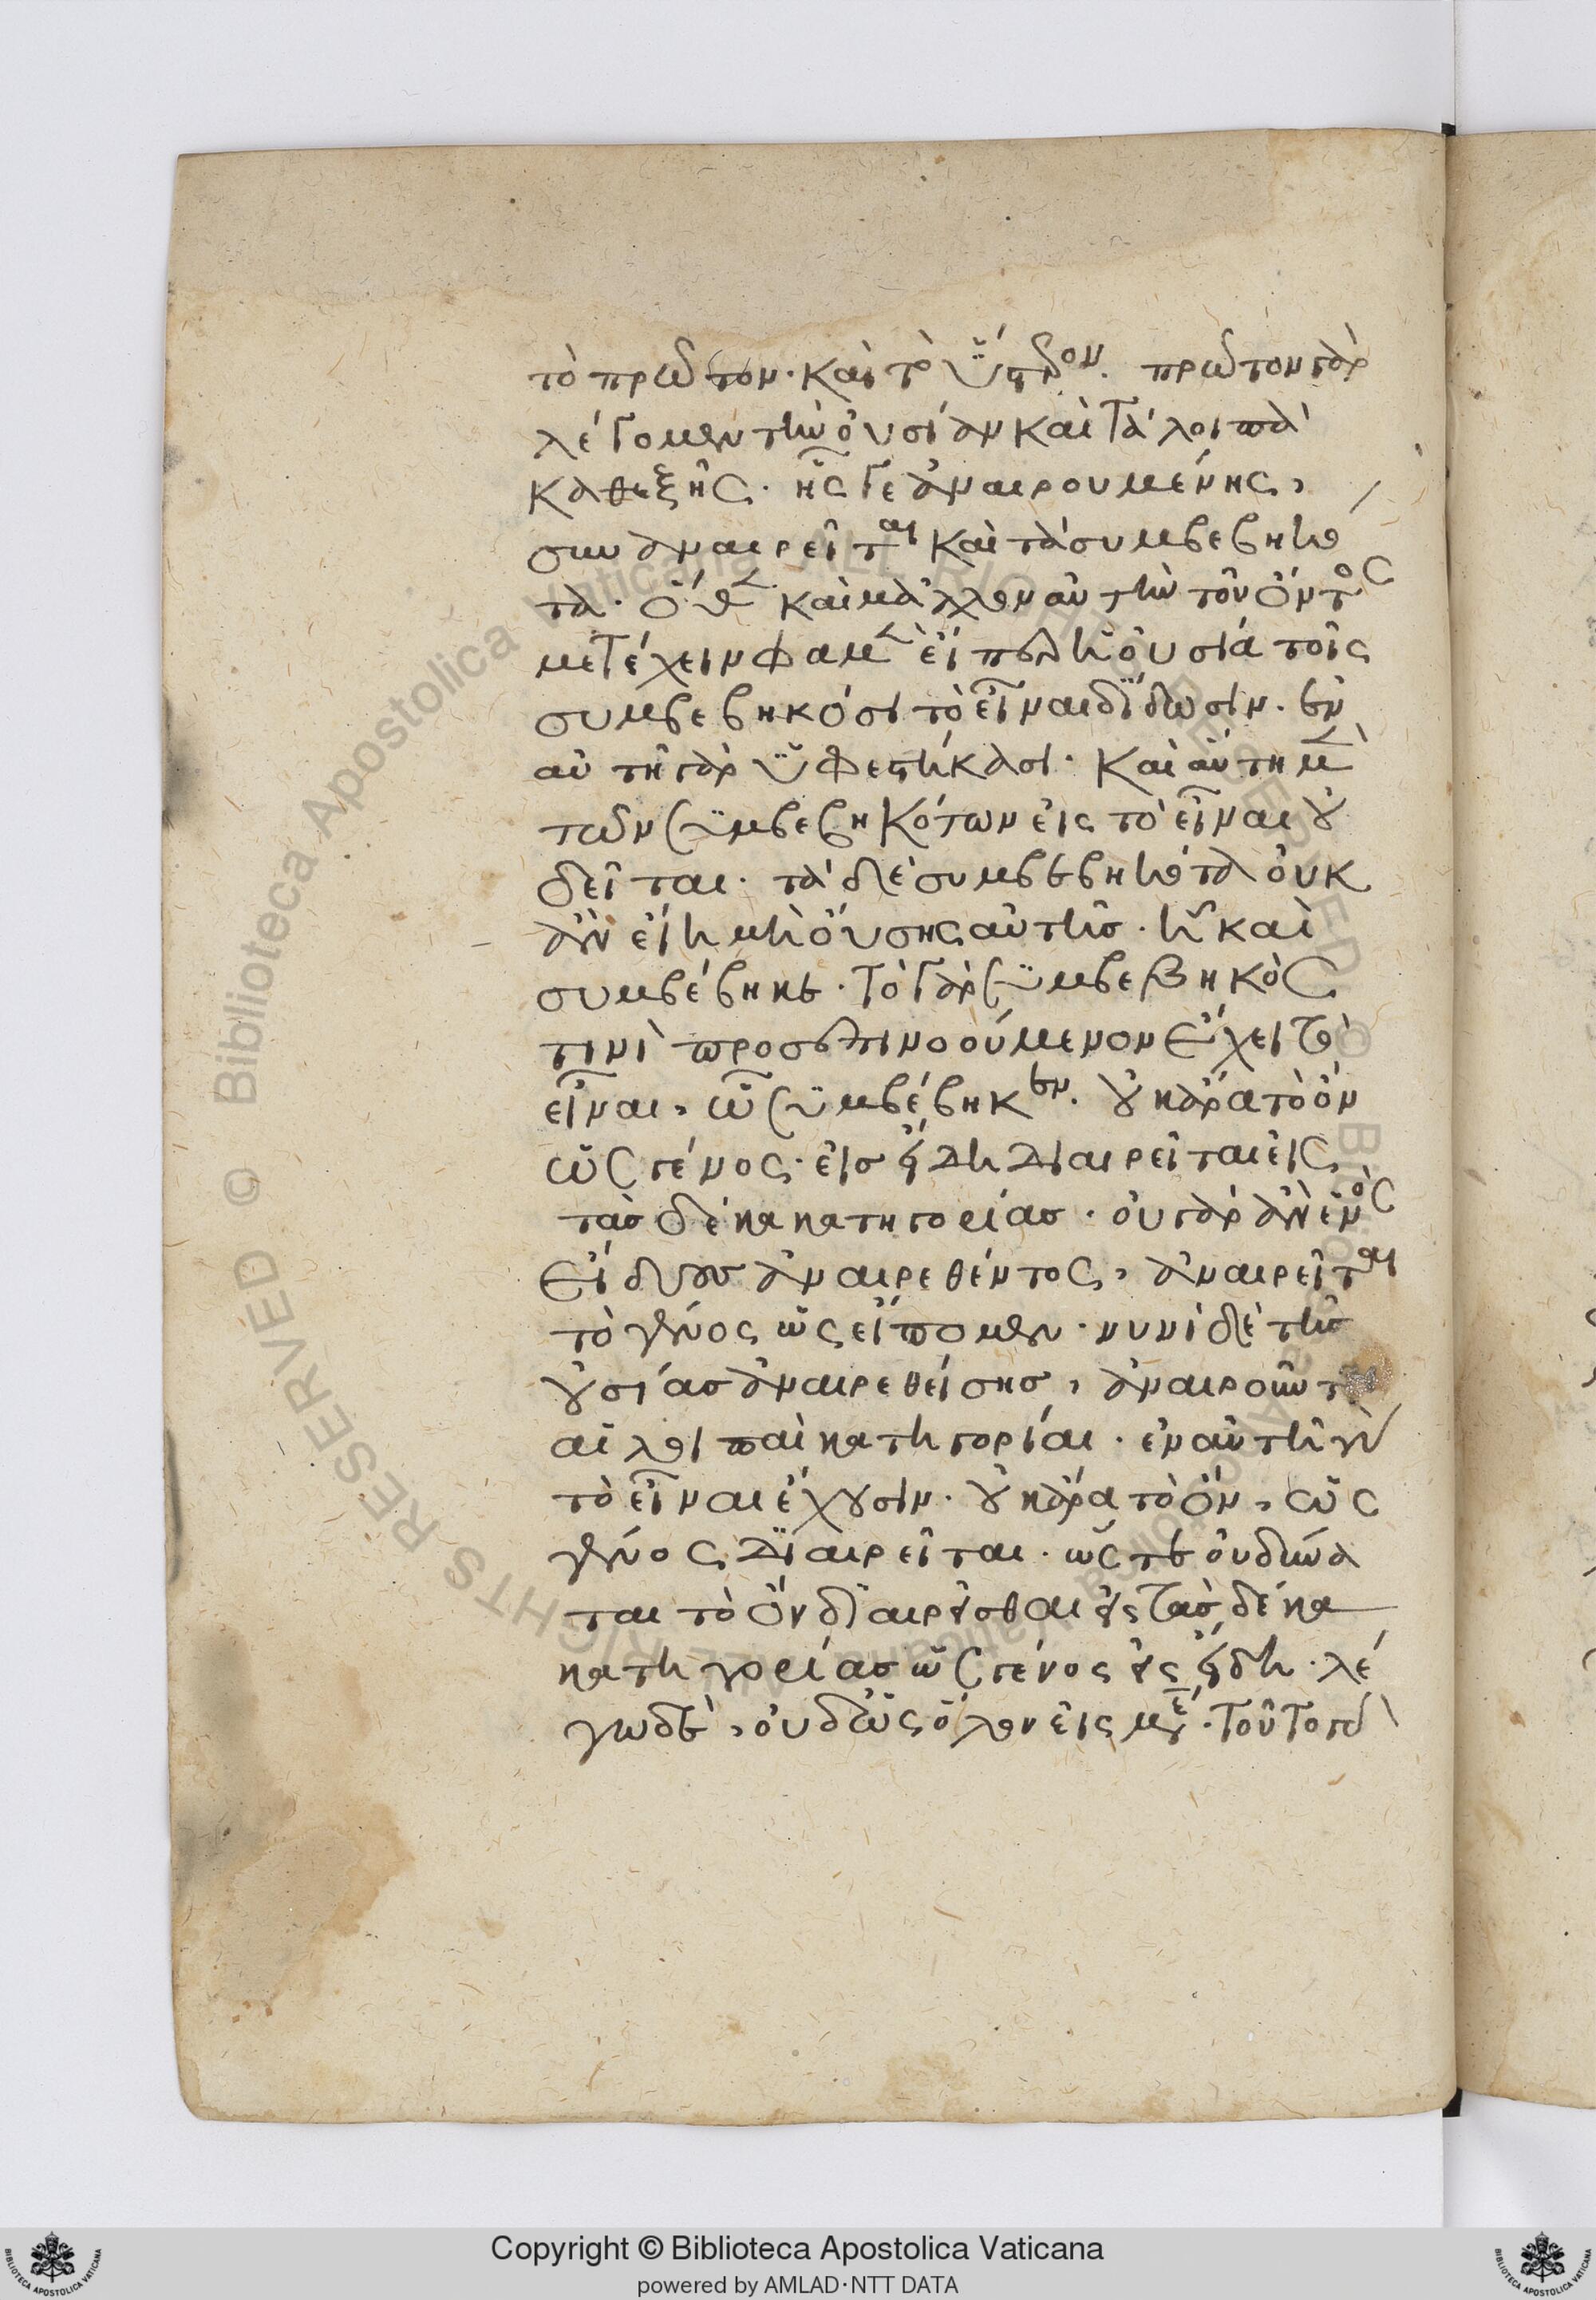 τὸ πρῶτον· καὶ τὸ ὕστερον. πρῶτον γὰρ
λέγομεν τὴν οὐσίαν καὶ τὰ λοιπὰ
καθεξῆς· ἧς γε ἀναιρουμένης,
συναναιρεῖται καὶ τὰ συμβεβηκό
τα· ὅθεν καὶ μᾶλλον αὐτὴν τοῦ ὄντος
μετέχειν φαμὲν εἴπερ ἡ οὐσία τοῖς
συμβεβηκόσι τὸ εἶναι δίδωσιν. ἐν
αὐτῆ γὰρ ὑφεστήκασι· καὶ αὕτη μὲν
τῶν συμβεβηκότων εἰς τὸ εἶναι οὐ
δεῖται· τὰ δὲ συμβεβηκότα οὐκ
ἂν εἴη μὴ οὔσης αὐτῆς· ἧ καὶ
συμβέβηκε· τὸ γὰρ συμβεβηκὸς
τινὶ προσεπινοούμενον ἔχει τὸ
εἶναι, ὧ συμβέβηκεν. οὐκ ἄρα τὸ ὂν
ὡς γένος· εἰς εἴδη διαιρεῖται εἰς
τὰς δέκα κατηγορίας· οὐ γὰρ ἂν ἑνὸς
εἴδους ἀναιρεθέντος, ἀναιρεῖται
τὸ γένος ὡς εἴπομεν· νυνὶ δὲ τῆς
οὐσίας ἀναιρεθείσης, ἀναιροῦντ
αἱ λοιπαὶ κατηγορίαι· ἐν αὐτῆ γὰρ
τὸ εἶναι ἔχουσιν· οὐκ ἄρα τὸ ὂν, ὡς
γένος διαιρεῖται· ὥστε οὐ δύνα
ται τὸ ὂν διαιρεῖσθαι εἰς τὰς δέκα
κατηγορίας ὡς γένος εἰς εἴδη· λέ
γω δὲ, οὐδ' ὡς ὅλον εἰς μέρη· τοῦτο γὰρ